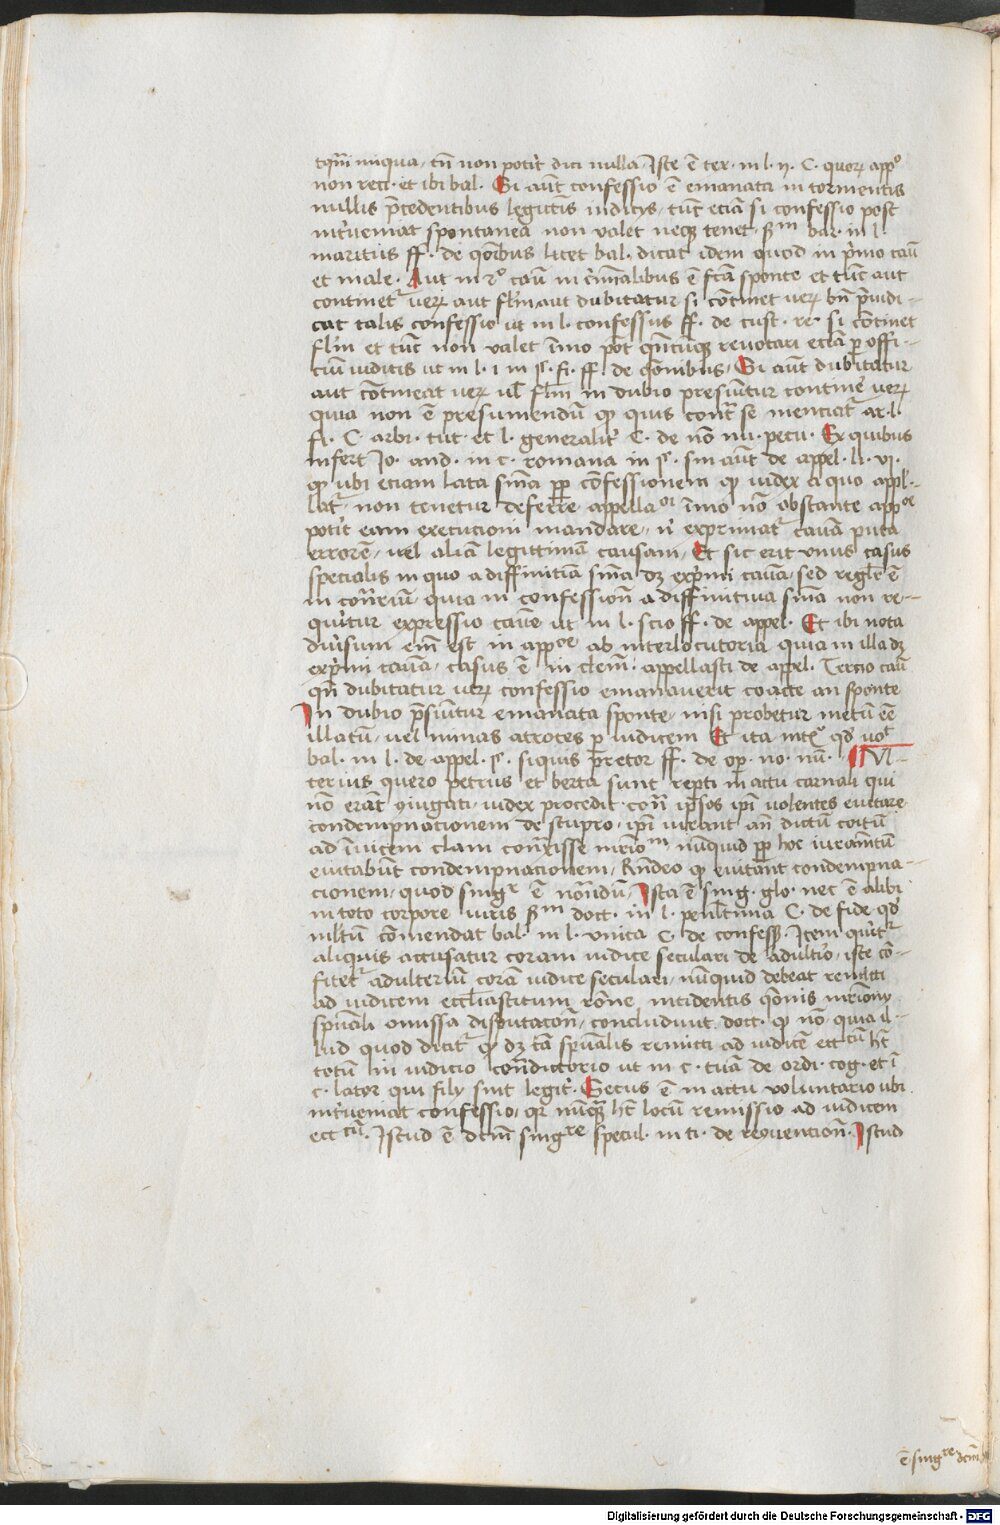 tqm̄ iniqua, tn̄ non potit dici nulla. Iste ē tex. in l. ij. C. quorꝫ app̄o
non reci. et ibi bal. Si aūt confessio ē emanata in tormentis
nullis p̄cedentibus legittīs indicijs, tūc eciā si confessio post
int̄ueniat spontanea non valet neqꝫ tenet, s̄m bar. in l.
maritus ff. de qōnibus licet bal. dicat idem quod in p̄mo casu
et male. Aut in 2º casu in c̄minalibus ē fc̄a sponte et tūc aut
continetᷣ uerꝫ aut fl̄m aut dubitatur si cōtinet uerꝫ bn̄ p̄iudi-
cat talis confessio ut in l. confessus ff. de cust. re. si cōtinet
fl̄m et tūc non valet īmo pōt qn̄cūqꝫ reuocari eciā ꝑ offi-
ciū iudicis ut in l. 1 in §. fi. ff. de qōnibus, Si aūt dubitatur
aut cōtineat uerꝫ ul̄ fl̄m in dubio presumitur continē uerꝫ
quia non ē presumendū qꝫ quis contr̄ se menciatᷣ ar. l.
fi. C. arbi. tut. et l. generalit̄ C. de nō nu. pecu. Ex quibus
infert Io. and. in c. romana in §. sin aūt de appel. li. vi.
qꝫ ubi eciam lata sn̄ia ꝓp̄ cōfessionem qꝫ iudex a quo appl̄-
latᷣ. non tenetur deferre appella⁰ⁱ īmo nō obstante app⁰ᵉ
potit eam execucioni mandare, n̄ exprimatᷣ causā puta
errorē, uel aliā legittimā causam, Et sic erit vnus casus
specialis in quo a diffinitiā sn̄ia dꝫ exp̄mi causa, sed regl̄r ē
in cōtr̄riū, quia in confessionē a diffinitiua sn̄ia non re-
quiritur expressio cause ut in l. scio ff. de appel. Et ibi nota
diūsum em̄ est in app⁰ᵉ ab interlocutoria quia in illa dꝫ
exp̄mi causa, casus ē in clem̄. appellasti de appel. Tercio casu
qn̄ dubitatur uerꝫ confessio emanauerit coacte an sponte
In dubio p̄sumitur emanata sponte, nisi probetur metū eē
illatū, uel minas atroces ꝑ iudicem Et ita int̄x̄ qd̄ uol̄
bal. in l. de appel. §. siquis pretor ff. de op. no. nū. ¶ Vl-
terius quero petrus et berta sunt rep̄ti in actu carnali qui
nō erāt ꝯiugati, iudex procedit cont̄ ip̄sos ip̄i uolentes euitare
condempnacionem de stupro, ip̄i iurant an̄ dictū coitū
ad īuicem clam cont̄xisse mr̄ioᵐ nūnquid ꝓp̄ hoc iuramētū
euitabūt condempnacionem, Rn̄deo qꝫ euitant condempna-
cionem, quod singʳ ē notandū, Ista ē sing. glo. nec ē alibi
in toto corpore iuris s̄m doct. in l. penl̄tima C. de fide qd̄
ml̄tū cōmendat bal. in l. vnica C. de confess. Item querit̄
aliquis accusatur coram iudice seculari de adult̄io, iste cō-
fitetᷣ adulteriū corā iudice seculari, nūnquid debeat remitti
ad iudicem eccl̄iasticum rōne incidentis qōnis mr̄ionij
spūali omissa disputacōn̄, concludunt doct. qꝫ nō, quia il-
lud quod dicitᷣ qꝫ dꝫ cā spūalis remitti ad iudicē eccᶜᵘ̄ hꝫ
totū in iudicio cont̄dictorio ut in c. tuā de ordi. cog. et ī
c. lator qui filij sint legit̄. Secus ē in actu voluntario ubi
int̄ueniat confessio, qr̄ nūqꝫ hꝫ locū remissio ad iudicem
eccᶜᵘ̄. Istud ē dcm̄ singʳᵉ specul. in ti. de reꝯuencion̄. Istud
ē singʳᵉ dcm̄
Digitalisierung gefördert durch die Deutsche Forschungsgemeinschaft - DFG